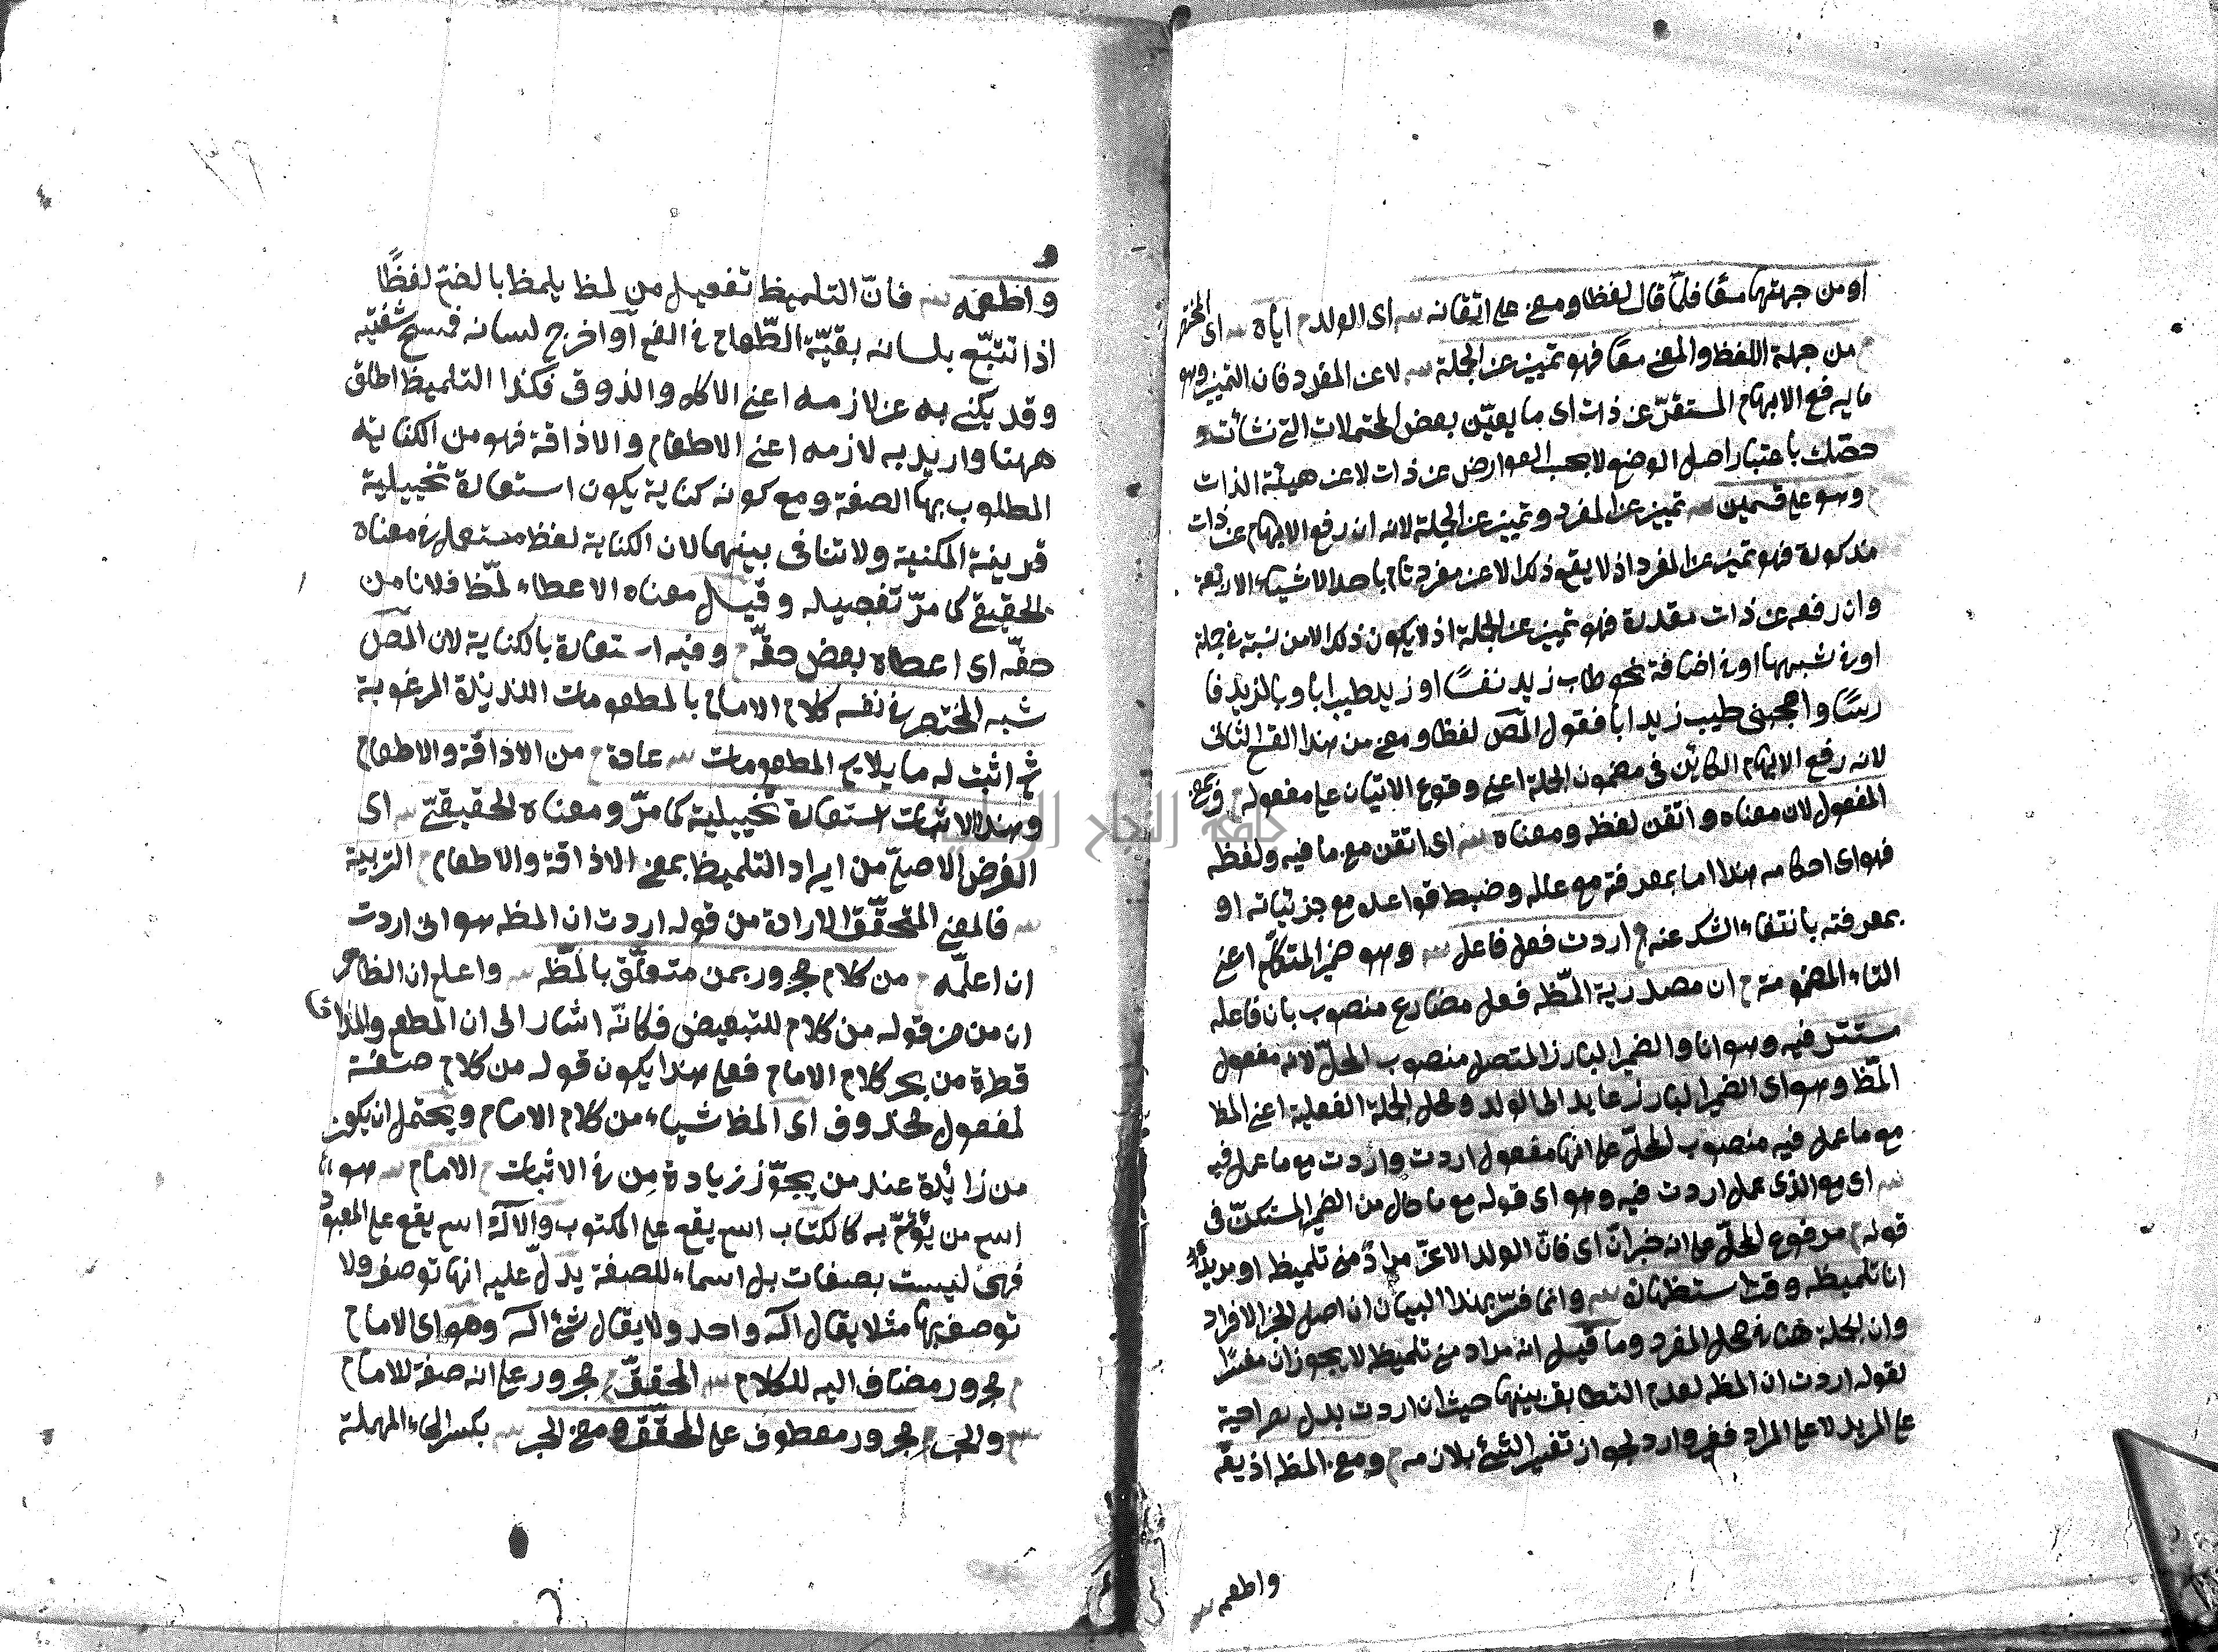 او من جهتهما معًا فلمّا قال لفظا ومعنى على اتقانه سه اى الولد م اياه سه اى المختصر
م من جهة اللفظ والمعنى معًا فهو تمييز عن الجملة سه لا عن المفرد فان التميز وهو
ما يرفع الابهام المستقرّ عن ذات اى ما يعيّن بعض المحتملات التى نشأت
باعتبار اصل الوضع لا بحسب العوارض عن ذات لا عن هيئة الذات
م وهو على قسمين سه تمييز عن المفرد وتمييز عن الجملة لانه ان رفع الابهام عن ذات
مذكورة فهو تميز عن المفرد اذ لا يقع ذلك الا عن مفرد تام باحد الاشياء الاربعة
وان رفعه عن ذات مقدرة فهو تميز عن الجملة اذ لا يكون ذلك الا من نسبة فى جملة
او فى شبهها او فى اضافة نحو طاب زيد نفسًا او زيد طيب ابا وبالزيد فا
رسًا واعجبنى طيب زيد ابا فقول المص لفظا ومعنى من هذا القسم الثانى
لانه رفع الابهام الكائن فى مضمون الجملة اعنى وقوع الاتيان على مفعوله م
المفعول لان معناه واتقن لفظه ومعناه سه اى اتقن مع ما فيه ولفظه
فهو اى احكامه هذا اما بمعرفته مع علله وضبط قواعده مع جزئياته او
بمعرفته بانتفاء الشك عنه م اردت فعل فاعل سه وهو ضمير المتكلّم اعنى
التاء المضمومة م ان مصدرية المّظه فعل مضارع منصوب بان فاعله
مستتر فيه وهو انا والضمير البارز المتصل منصوب المحلّ لانه مفعول
المّظ وهو اى الضمير البارز عايد الى الولد ومحل الجملة الفعلية اعنى المظ
مع ما عمل فيه منصوب المحلّ على انها مفعول اردت واردت مع ما عمل فيه
سه اى مع الذى عمل اردت فيه وهو اى قوله مع ما حال من الضمير المستكنّ فى
قوله م مرفوع المحلّ على انه خبر انّ اى فانّ الولد الاعزّ مرادٌ من تلميظه او مريدٌ
انا تلميظه وقت استظهاره سه وانما فسّر بهذا البيان ان اصل الخبر الافراد
وان الجملة هنا فى محل المفرد وما قيل انه مراد من تلميظه لا يجوز ان مفسّرا
لقوله اردت ان المظه لعدم التطابق بينهما حيث ان اردت يدل صراحية
على المريد لا على المراد فغير وارد لجواز تفسير الشئ بلازمه م ومعنى المظه اذيقه
واطعمه سه
واطعمه سه فانّ التلميظ تفعيل من لمظ يلمظ بالضم لفظًا
اذا تتبّع بلسانه بقيّة الطّعام فى الفم او اخرج لسانه فمسح شفتيه
وقد يكنى به عن لازمه اعنى الاكل والذوق فكذا التلميظ اطلق
ههنا واريد به لازمه اعنى الاطعام والاذاقة فهو من الكناية
المطلوب بها الصفة ومع كونه كناية يكون استعارة تخييلية
قرينة المكنية ولا تنافى بينهما لان الكناية لفظ مستعمل فى معناه
الحقيقى كما مرّ تفصيله وقيل معناه الاعطاء لمّظ فلانا من
حقّه اى اعطاه بعض حقّه م وفيه استعارة بالكناية لان المص
شبه المختصر فى نفسه كلام الامام بالمطعومات اللذيذة المرغوبة
ثم اثبت له ما يلايم المطعومات سه عادة م من الاذاقة والاطعام
وهذا الاثبات استعارة تخييلية كما مرّ ومعناه الحقيقىّ سه اى
الغرض الاصلىّ من ايراد التلميظ بمعنى الاذاقة والاطعام م التربية
سه فالمعنى المتحقّق الارادة من قوله اردت ان المظه هو انى اردت
ان اعلّمه م من كلام مجرور بمن متعلّق بالمّظه سه واعلم ان الظاهر
ان من فى قوله من كلام للتبعيض فكانّه اشار الى ان المطعم والمذاق
قطرة من بحر كلام الامام فعلى هذا يكون قوله من كلام صفة
لمفعول محذوف اى المظ شياء من كلام الامام ويحتمل ان يكون
من زائدة عند من يجوّز زيادة مِن فى الاثبات م الامام سه هو
اسم من يؤتمّ به كالكتاب اسم يقع على المكتوب والاله اسم يقع على المعبود
فهى ليست بصفات بل اسماء للصفة يدلّ عليه انها توصف ولا
توصف بها مثلا يقال اله واحد ولا يقال شئ اله وهو اى الامام
م مجرور مضاف اليه للكلام سه المحقّق م مجرور على انه صفة للامام
سه والحبر م مجرور معطوف على المحقّق ومعنى الحبر سه بكسر الحاء المهملة
جامعة النجاح الوطنية